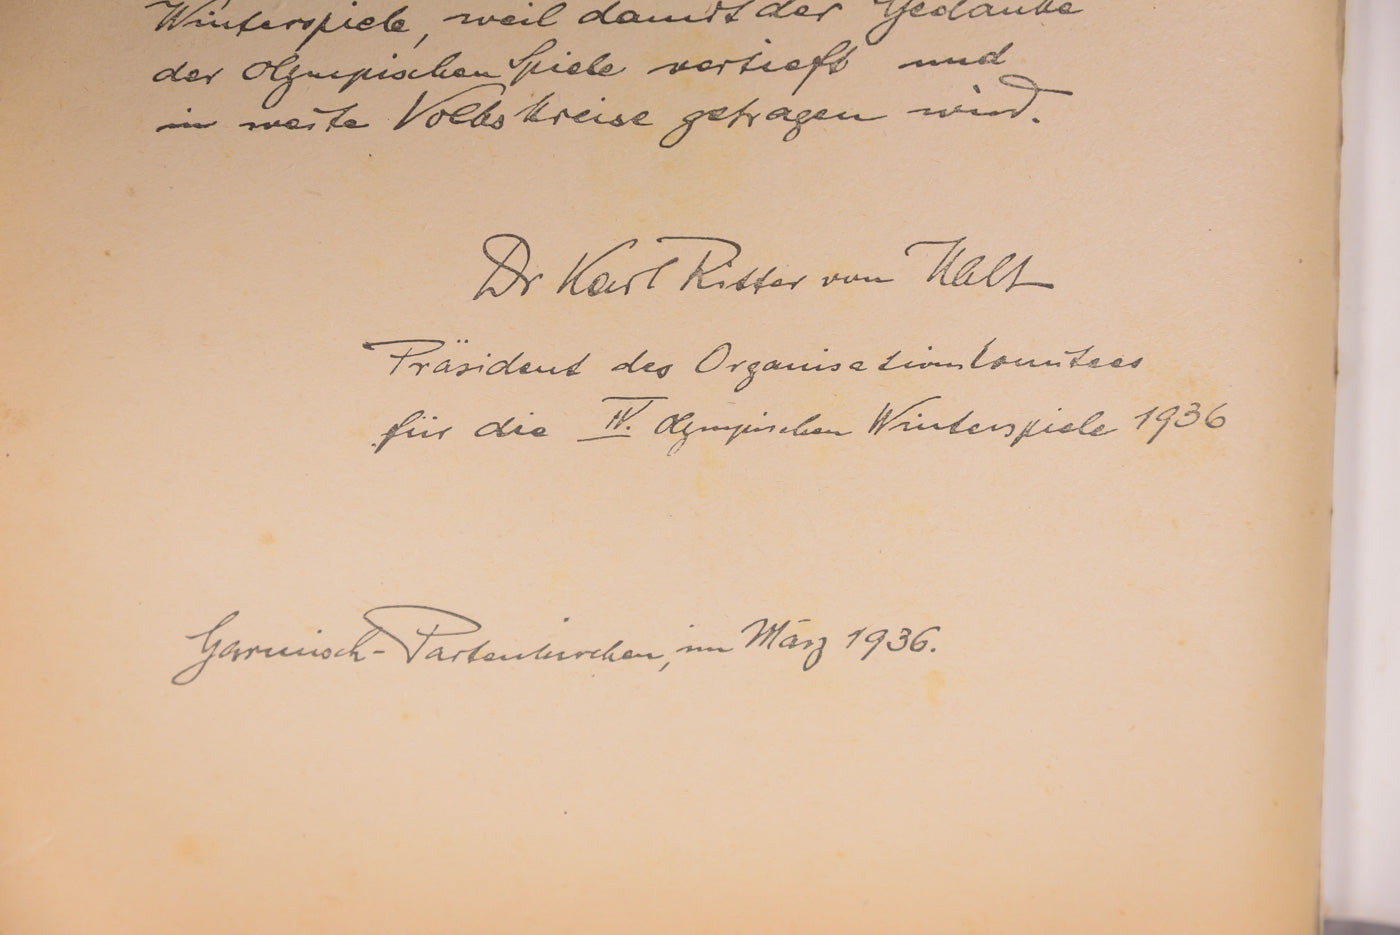 Winterspiele, weil damit der Gedanke
der Olympischen Spiele vertieft und
in weite Volkskreise getragen wird.
Dr Karl Ritter von Halt
Präsident des Organisationskomitees
für die IV. Olympischen Winterspiele 1936
Garmisch-Partenkirchen, im März 1936.